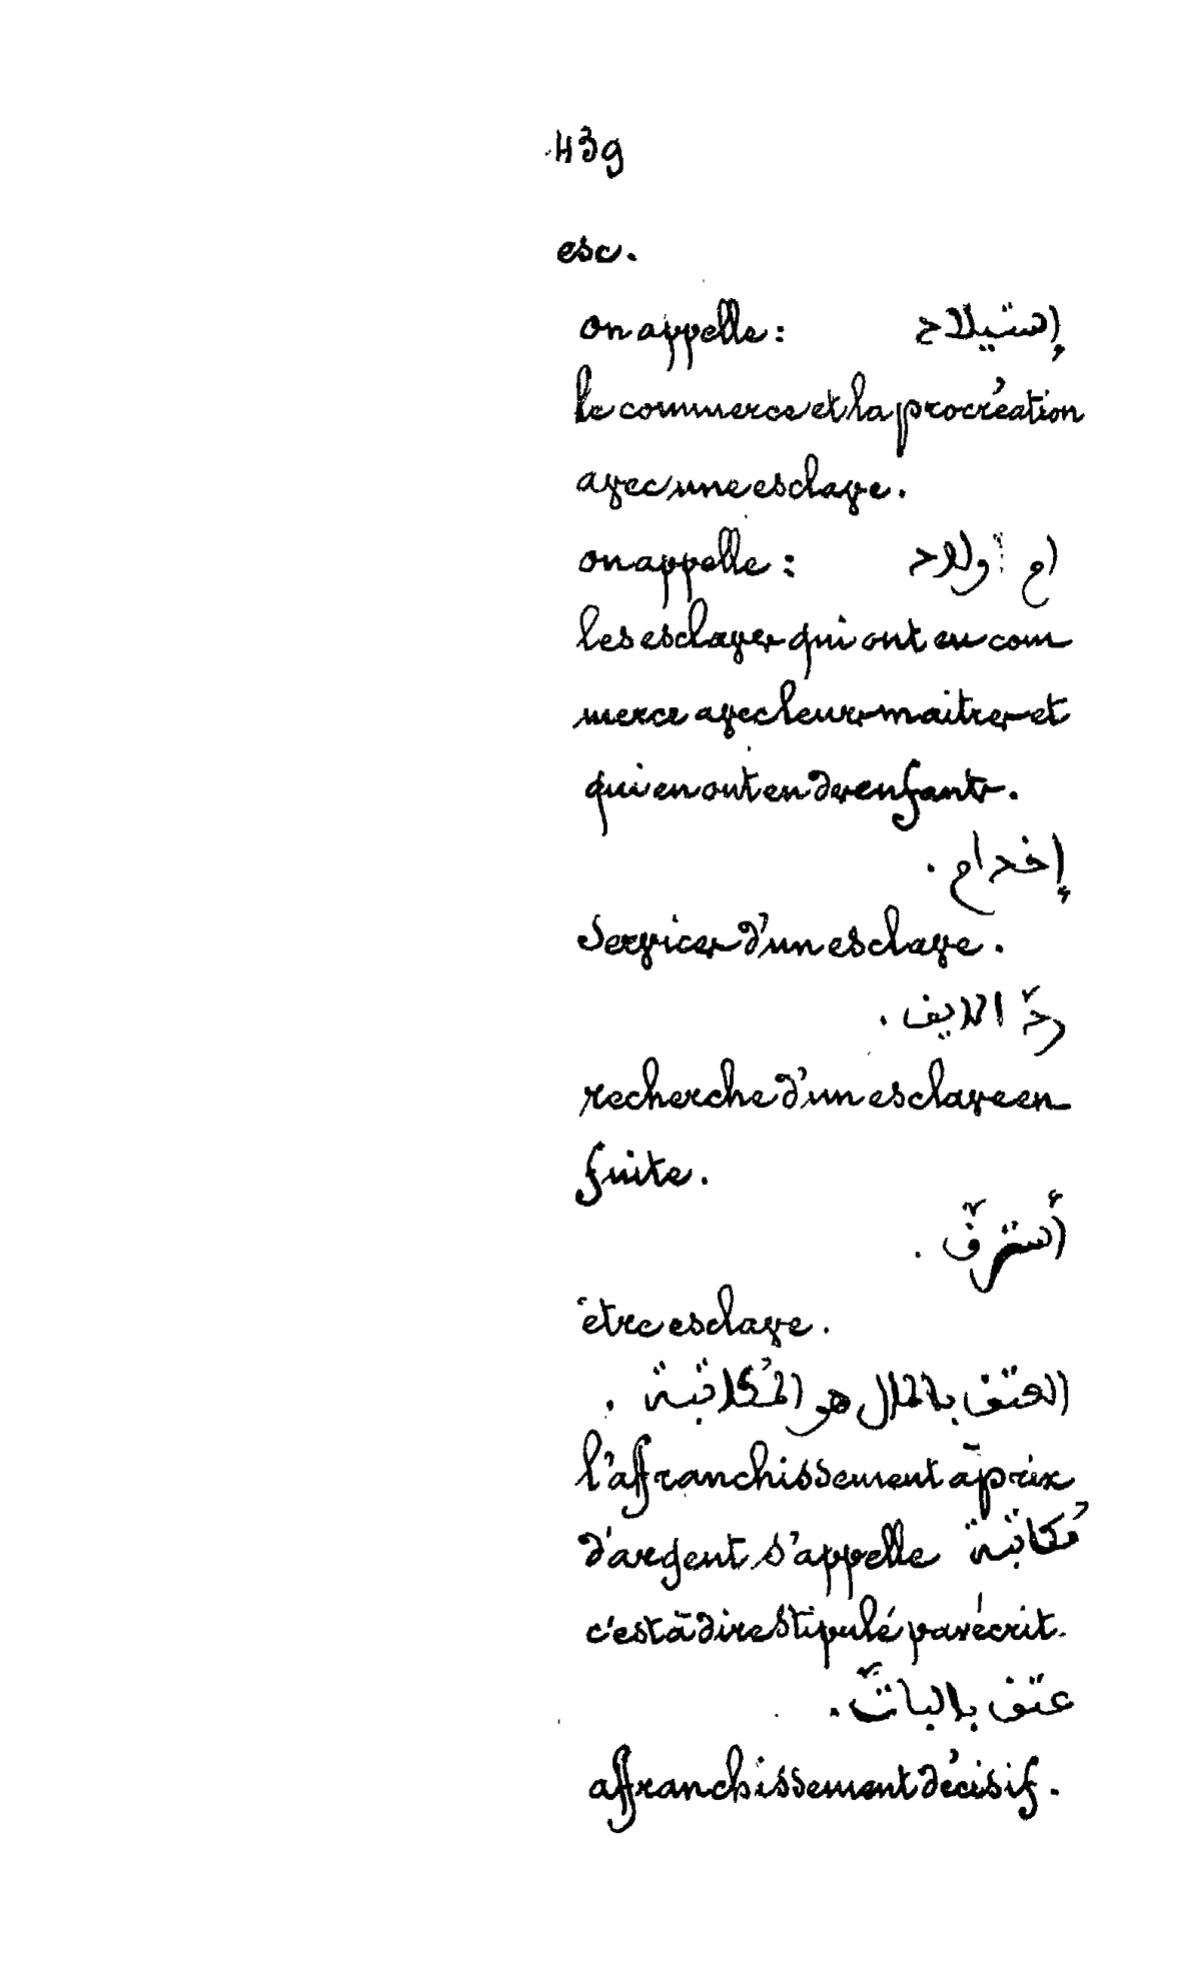 439
esc.
on appelle : إستيلاد
le commerce et la procréation
avec une esclave.
on appelle : ام اولاد
les esclaves qui ont eu com
merce avec leurs maitres et
qui en ont eu des enfants.
إخدام .
services d'un esclave.
ردّ الابق .
recherche d'un esclave en
fuite.
أسترقّ .
être esclave.
العتق بالمال هو المُكاتبة .
l'affranchissement à prix
d'argent s'appelle مُكاتبة
c'est à dire stipulé par écrit.
عتق بالباتّ .
affranchissement décisif.